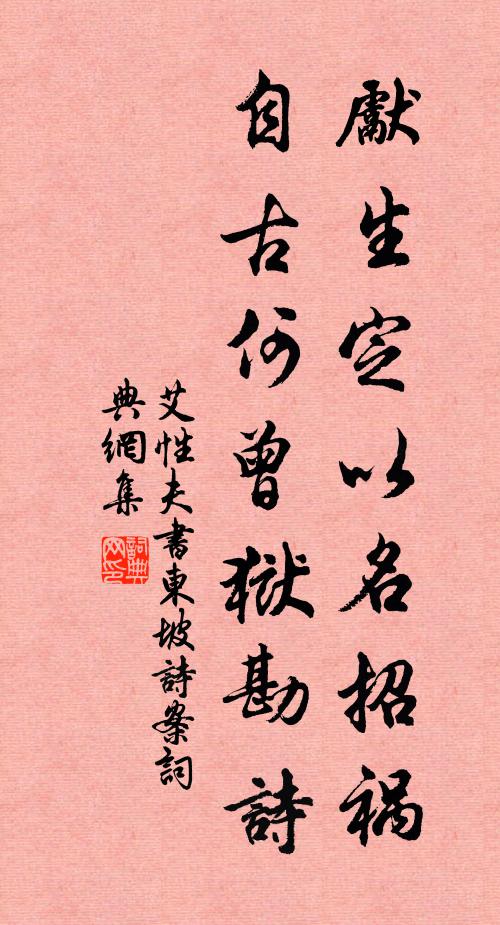 獻生定以名招祸
自古何曾獄勘詩
艾性夫書東坡詩案詞
典網集
詞典
网印